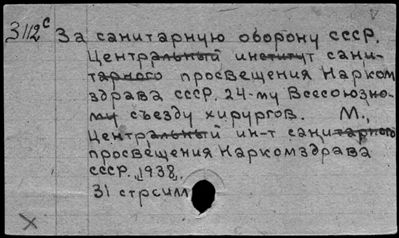 3112с За санитарную оборону СССР.
Центральный институт сани-
тарного просвещения Нарком
здрава СССР. 24-му Всесоюзно-
му съезду хирургов. М.,
Центральный ин-т санитарного
просвещения Наркомздрава
СССР, 1938.
31 стр с илл